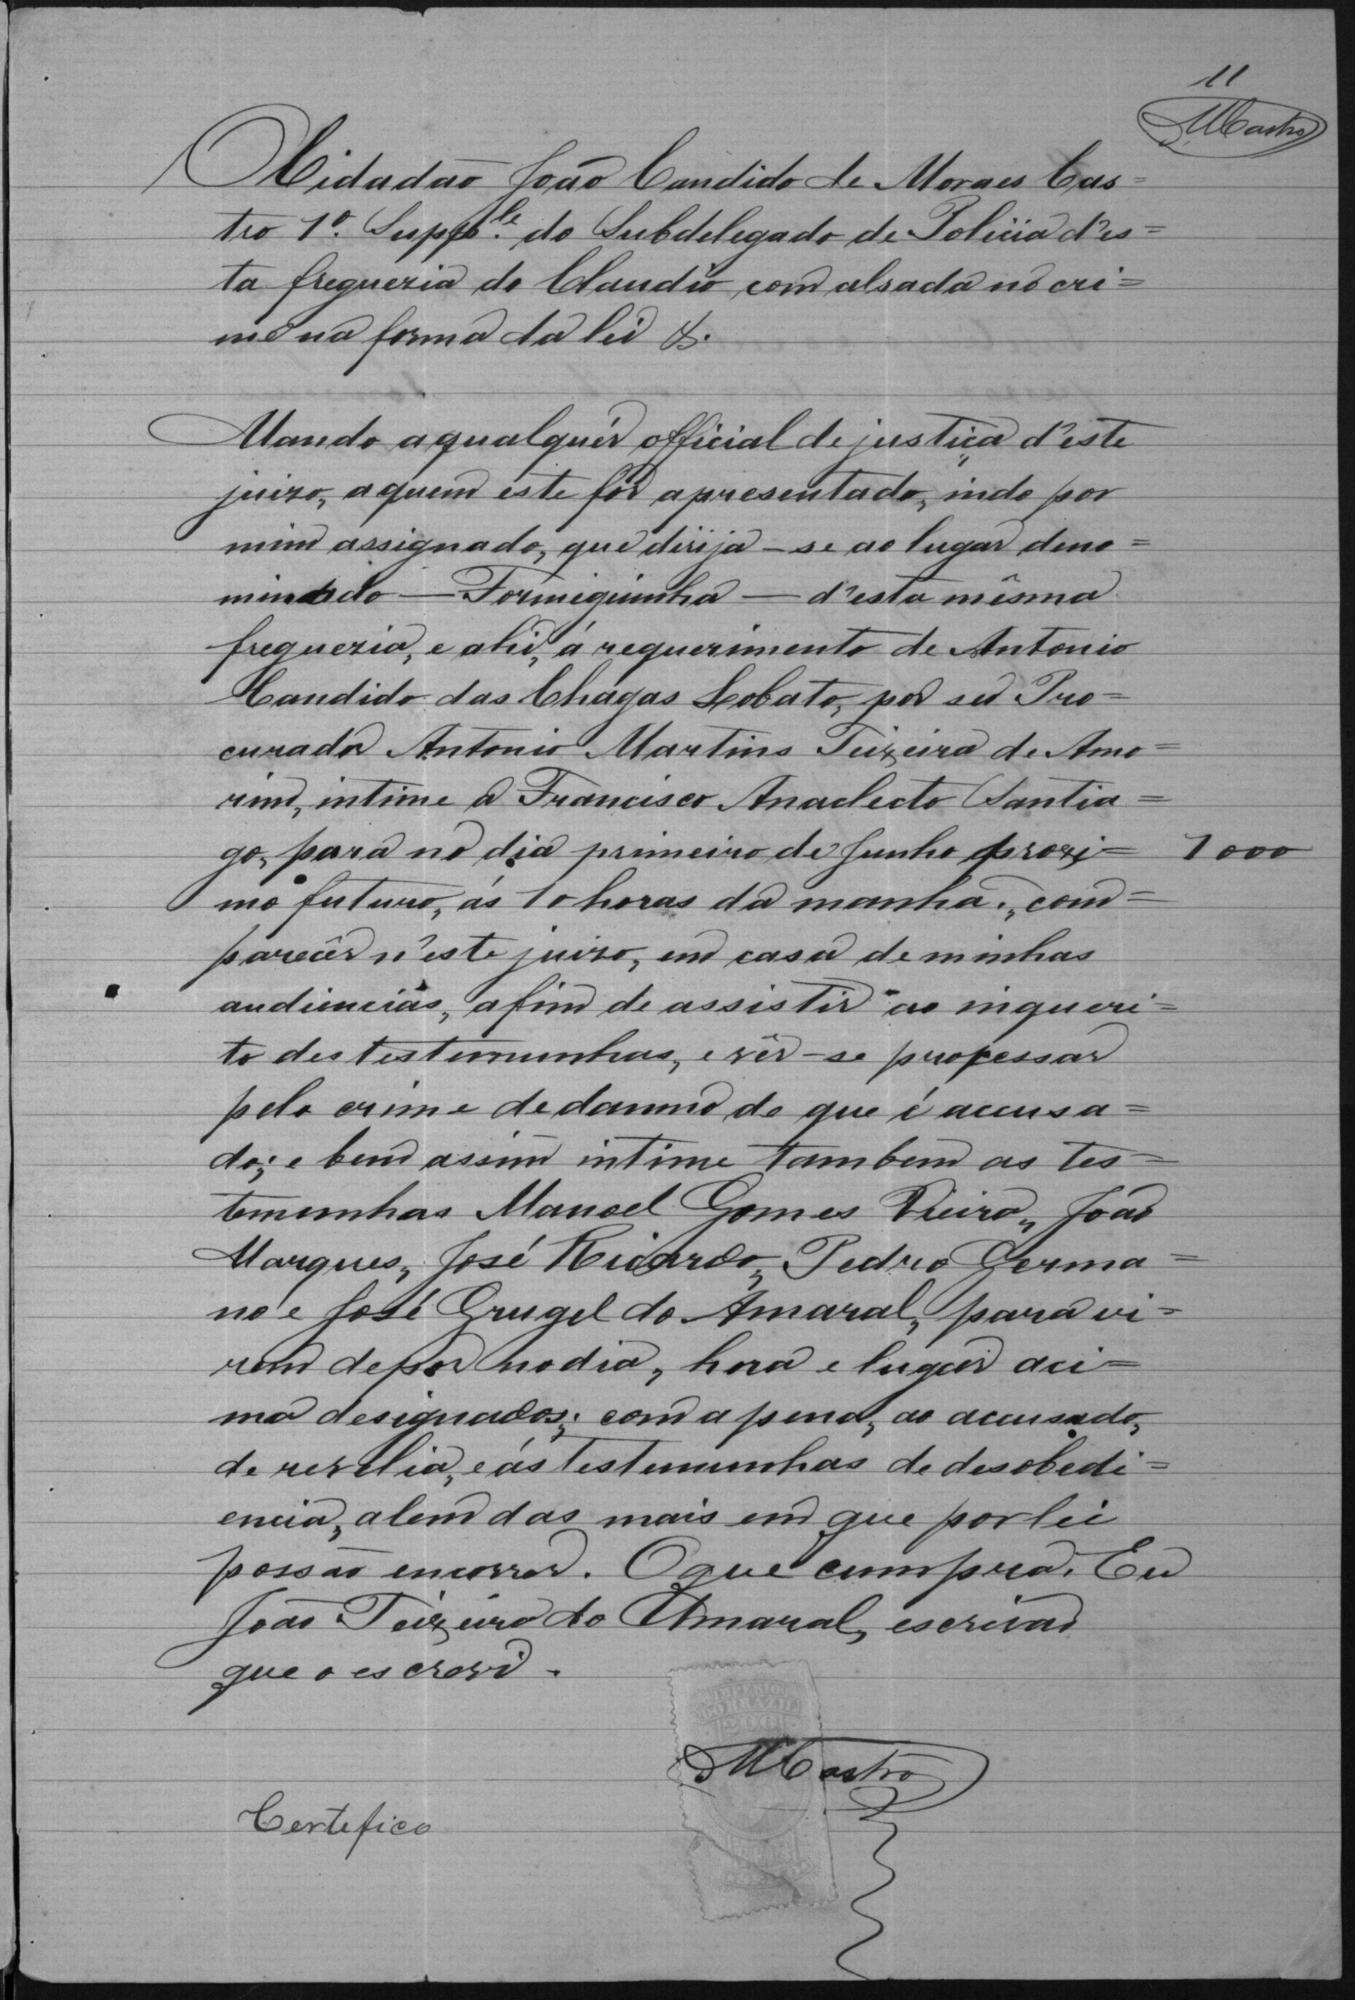 11
MCastro
O Cidadão João Candido de Moraes Cas=
tro 1º. Supp.te do Subdelegado de Policia d'es=
ta freguezia do Claudio com alsada no cri=
me na forma da lei &.
Mando a qualquér official de justiça d'este
juizo, a quem este fôr apresentado, indo por
mim assignado, que dirija-se ao lugar deno=
minado — Formiguinha — d'esta mêsma
freguezia, e ahi, á requerimento de Antonio
Candido das Chagas Lobato, por seu Pro=
curador Antonio Martins Teixeira de Amo=
rim, intime a Francisco Anacleto Santia=
go, para no dia primeiro de Junho proxi=
1000
mo futuro, ás 10 horas da manhã, com=
parecêr n'este juizo, em casa de minhas
audiencias, afim de assistir ao inqueri=
to das testemunhas, e vêr-se processar
pelo crime de damno de que é accusa=
do; e bem assim intime tambem as tes=
temunhas Manoel Gomes Vieira, João
Marques, José Ricardo, Pedro Germa=
no e José Grugel do Amaral, para vi=
rem depor no dia, hora e lugar aci=
ma designados; com a pena, ao accusado,
de revelia, e ás testemunhas de desobedi=
encia, alem das mais em que por lei
possão encorrer. O que cumpra. Eu
João Teixeira do Amaral, escrivão
que o escrevi.
IMPERIO
DO BRAZIL
200
MCastro
Certefico